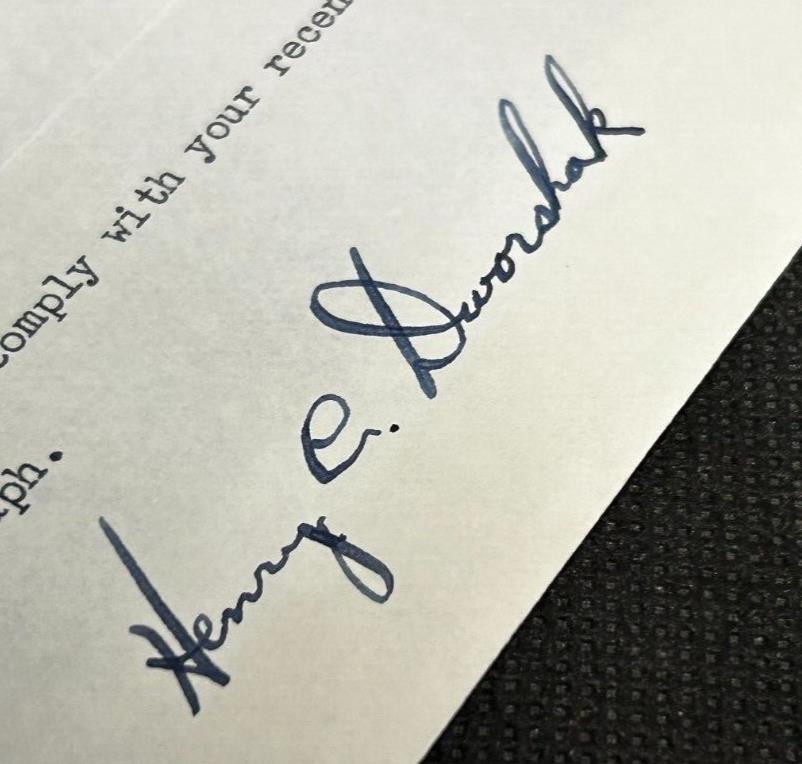 comply with your recen
aph.
Henry C. Dworshak